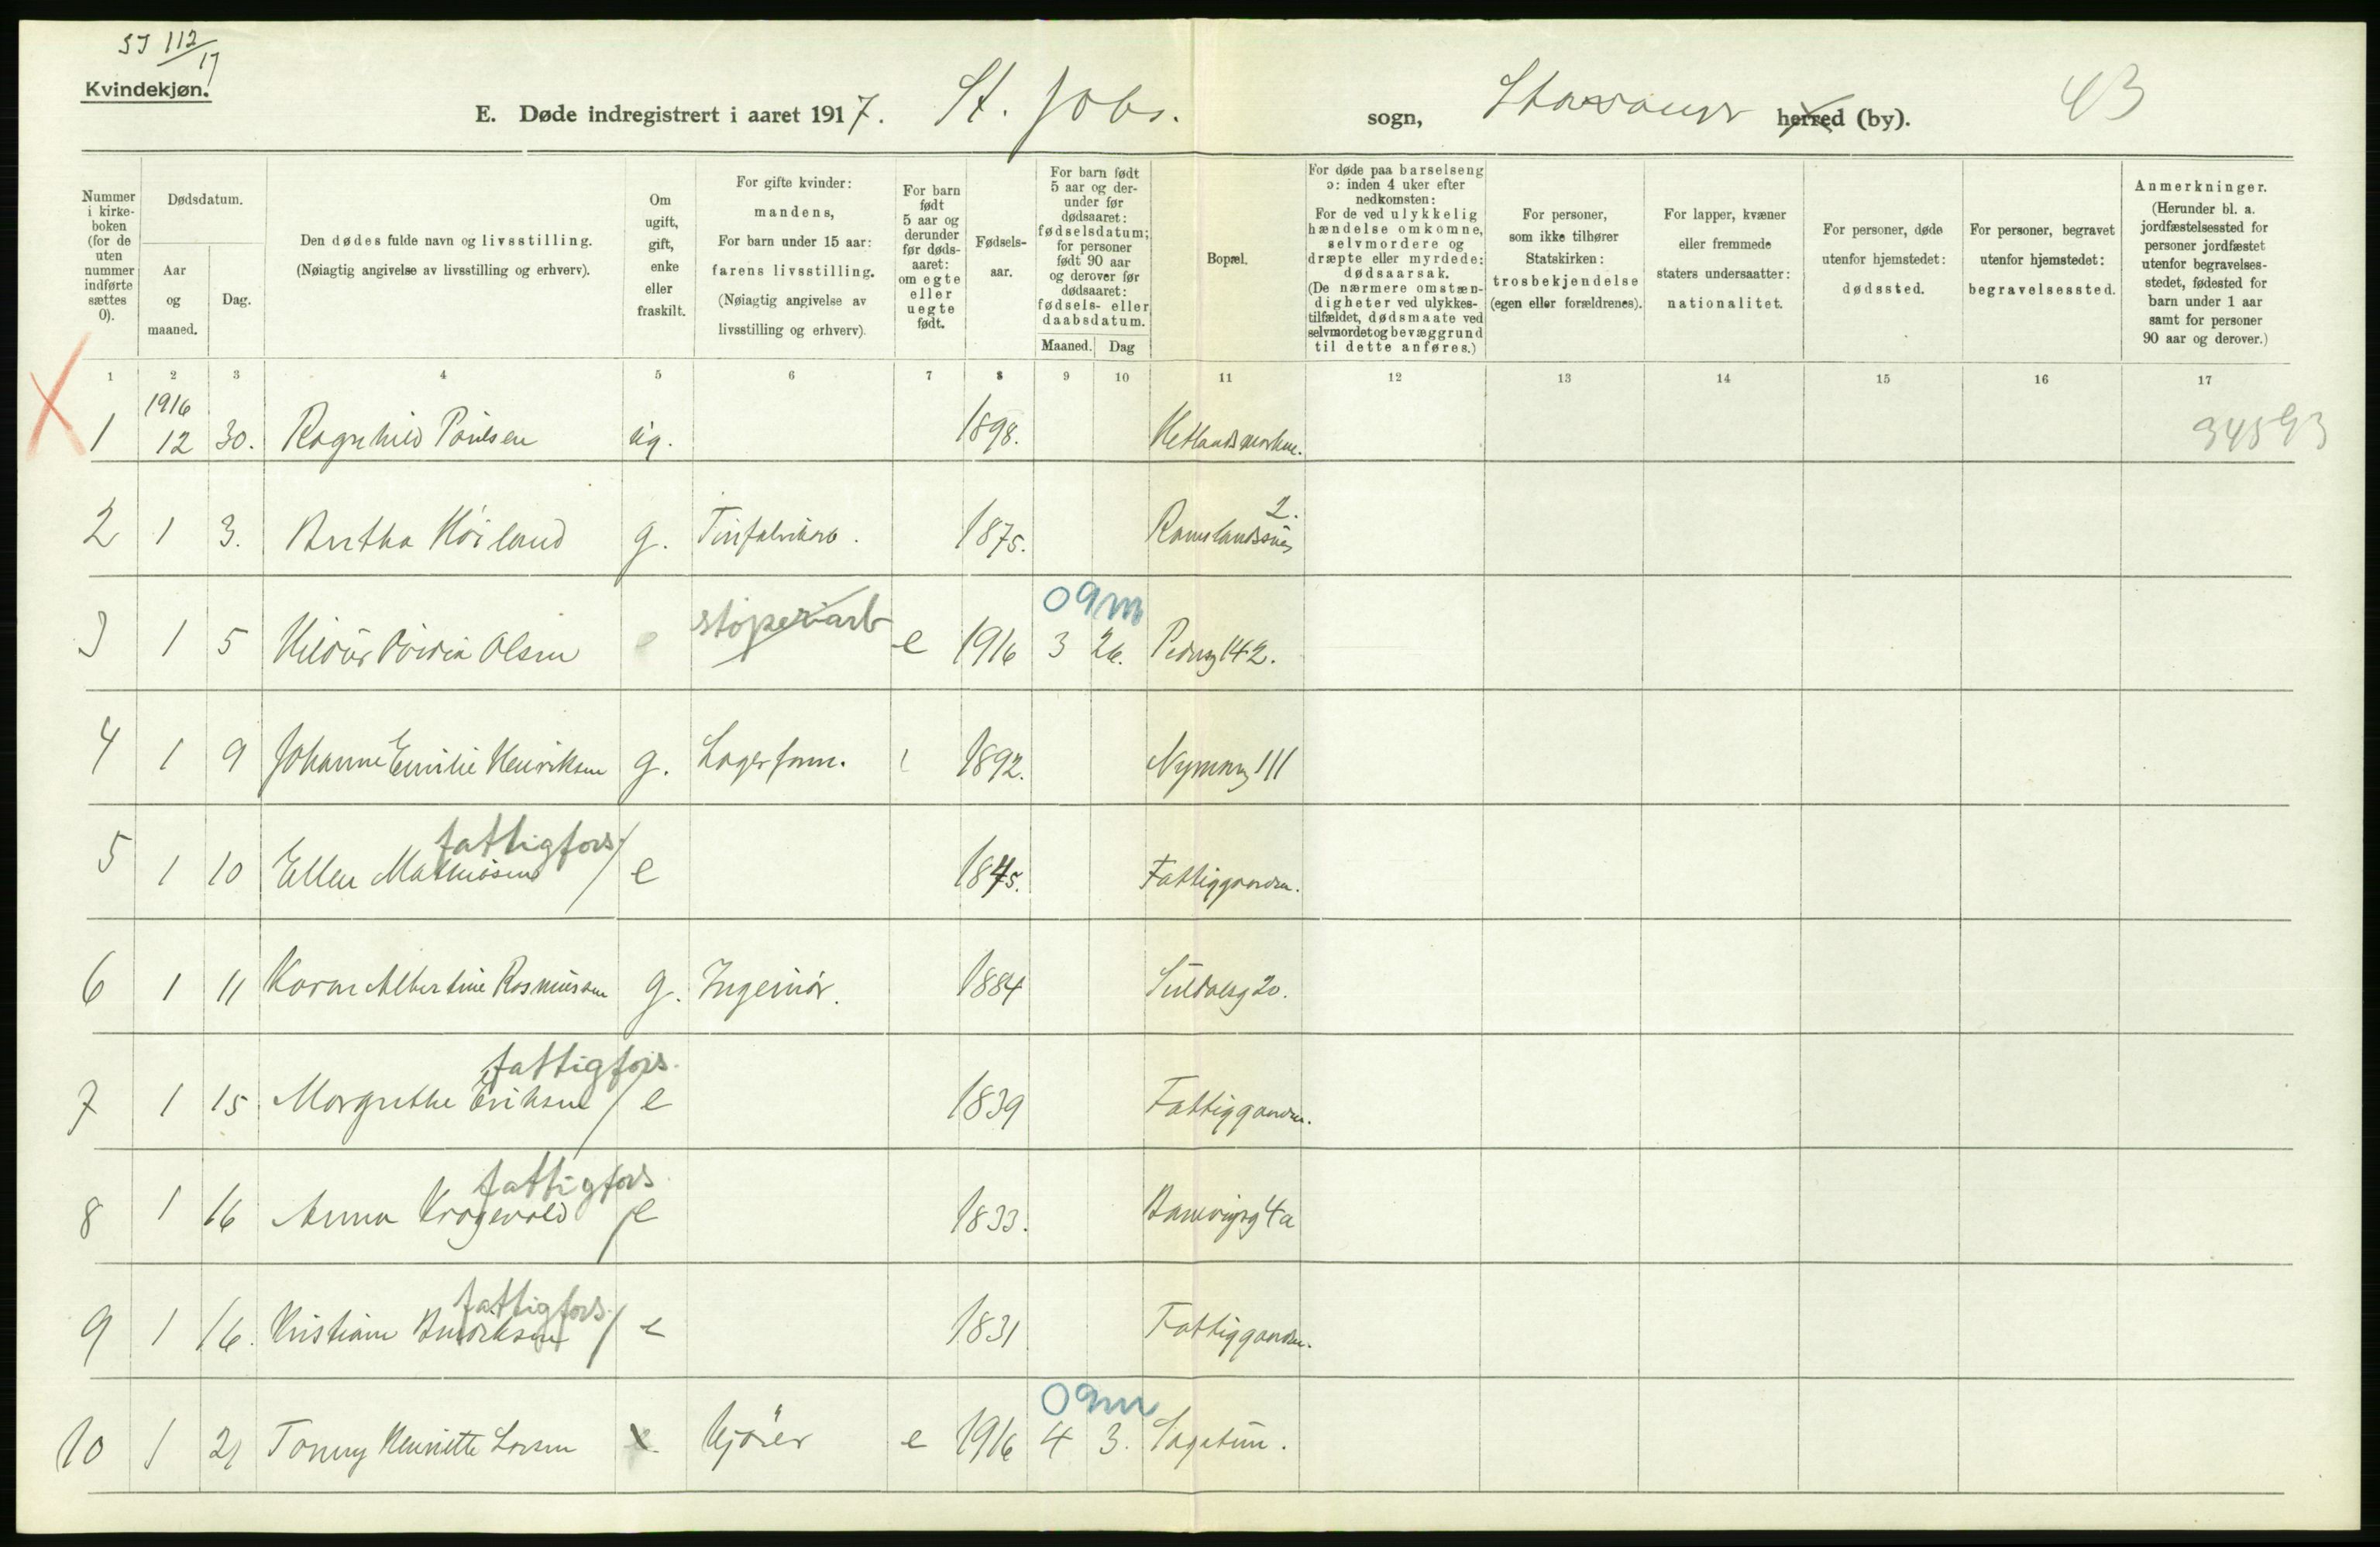 SJ 112/17
Kvindekjøn.
E. Døde indregistrert i aaret 1917. St. Joh. sogn, Stavanger herred (by). 43
Nummer i kirke-boken (for de uten nummer indførte sættes 0).
Dødsdatum.
Aar og maaned.
Dag.
Den dødes fulde navn og livsstilling.
(Nøiagtig angivelse av livsstilling og erhverv).
Om ugift, gift, enke eller fraskilt.
For gifte kvinder: mandens,
For barn under 15 aar: farens livsstilling.
(Nøiagtig angivelse av livsstilling og erhverv).
For barn født 5 aar og derunder før døds-aaret: om egte eller uegte født.
Fødsels-aar.
For barn født 5 aar og der-under før dødsaaret: fødselsdatum; for personer født 90 aar og derover før dødsaaret: fødsels- eller daabsdatum.
Maaned. Dag
Bopæl.
For døde paa barselseng ɔ: inden 4 uker efter nedkomsten:
For de ved ulykkelig hændelse omkomne, selvmordere og dræpte eller myrdede: dødsaarsak.
(De nærmere omstæn-digheter ved ulykkes-tilfældet, dødsmaate ved selvmordet og bevæggrund til dette anføres.)
For personer, som ikke tilhører Statskirken: trosbekjendelse (egen eller forældrenes).
For lapper, kvæner eller fremmede staters undersaatter: nationalitet.
For personer, døde utenfor hjemstedet: dødssted.
For personer, begravet utenfor hjemstedet: begravelsessted.
Anmerkninger.
(Herunder bl. a. jordfæstelsessted for personer jordfæstet utenfor begravelses-stedet, fødested for barn under 1 aar samt for personer 90 aar og derover.)
1 2 3 4 5 6 7 8 9 10 11 12 13 14 15 16 17
1916
1 12 30. Ragnhild Paulsen ug. 1898. Hetlandsmarken. 34593
2 1 3. Bertha Höiland g. Tinfabrikarb. 1875. Ramslandssnes 2.
støperiarb 09m
3 1 5 Hildur Olsen e 1916 3 26. Pedersg 142.
4 1 9 Johanne Emilie Henriksen g. Lagerform. 1892. Nymansg 111
fattigfors.
5 1 10 Ellen Mathiesen / e 1845. Fattiggaarden.
6 1 11 Karen Albertine Rasmussen g. Ingeniör. 1884 Suldalsg 20.
fattigfors.
7 1 15 Margrethe Eriksen / e 1839 Fattiggaarden.
fattigfors
8 1 16 Anna Kragevold / e 1833. Banevigsg 4a
fattigfors.
9 1 16. Kristiane / e 1831 Fattiggaarden.
09m
10 1 21 Tonny Henriette Larsen x kjörer e 1916 4 3. Sagatun.